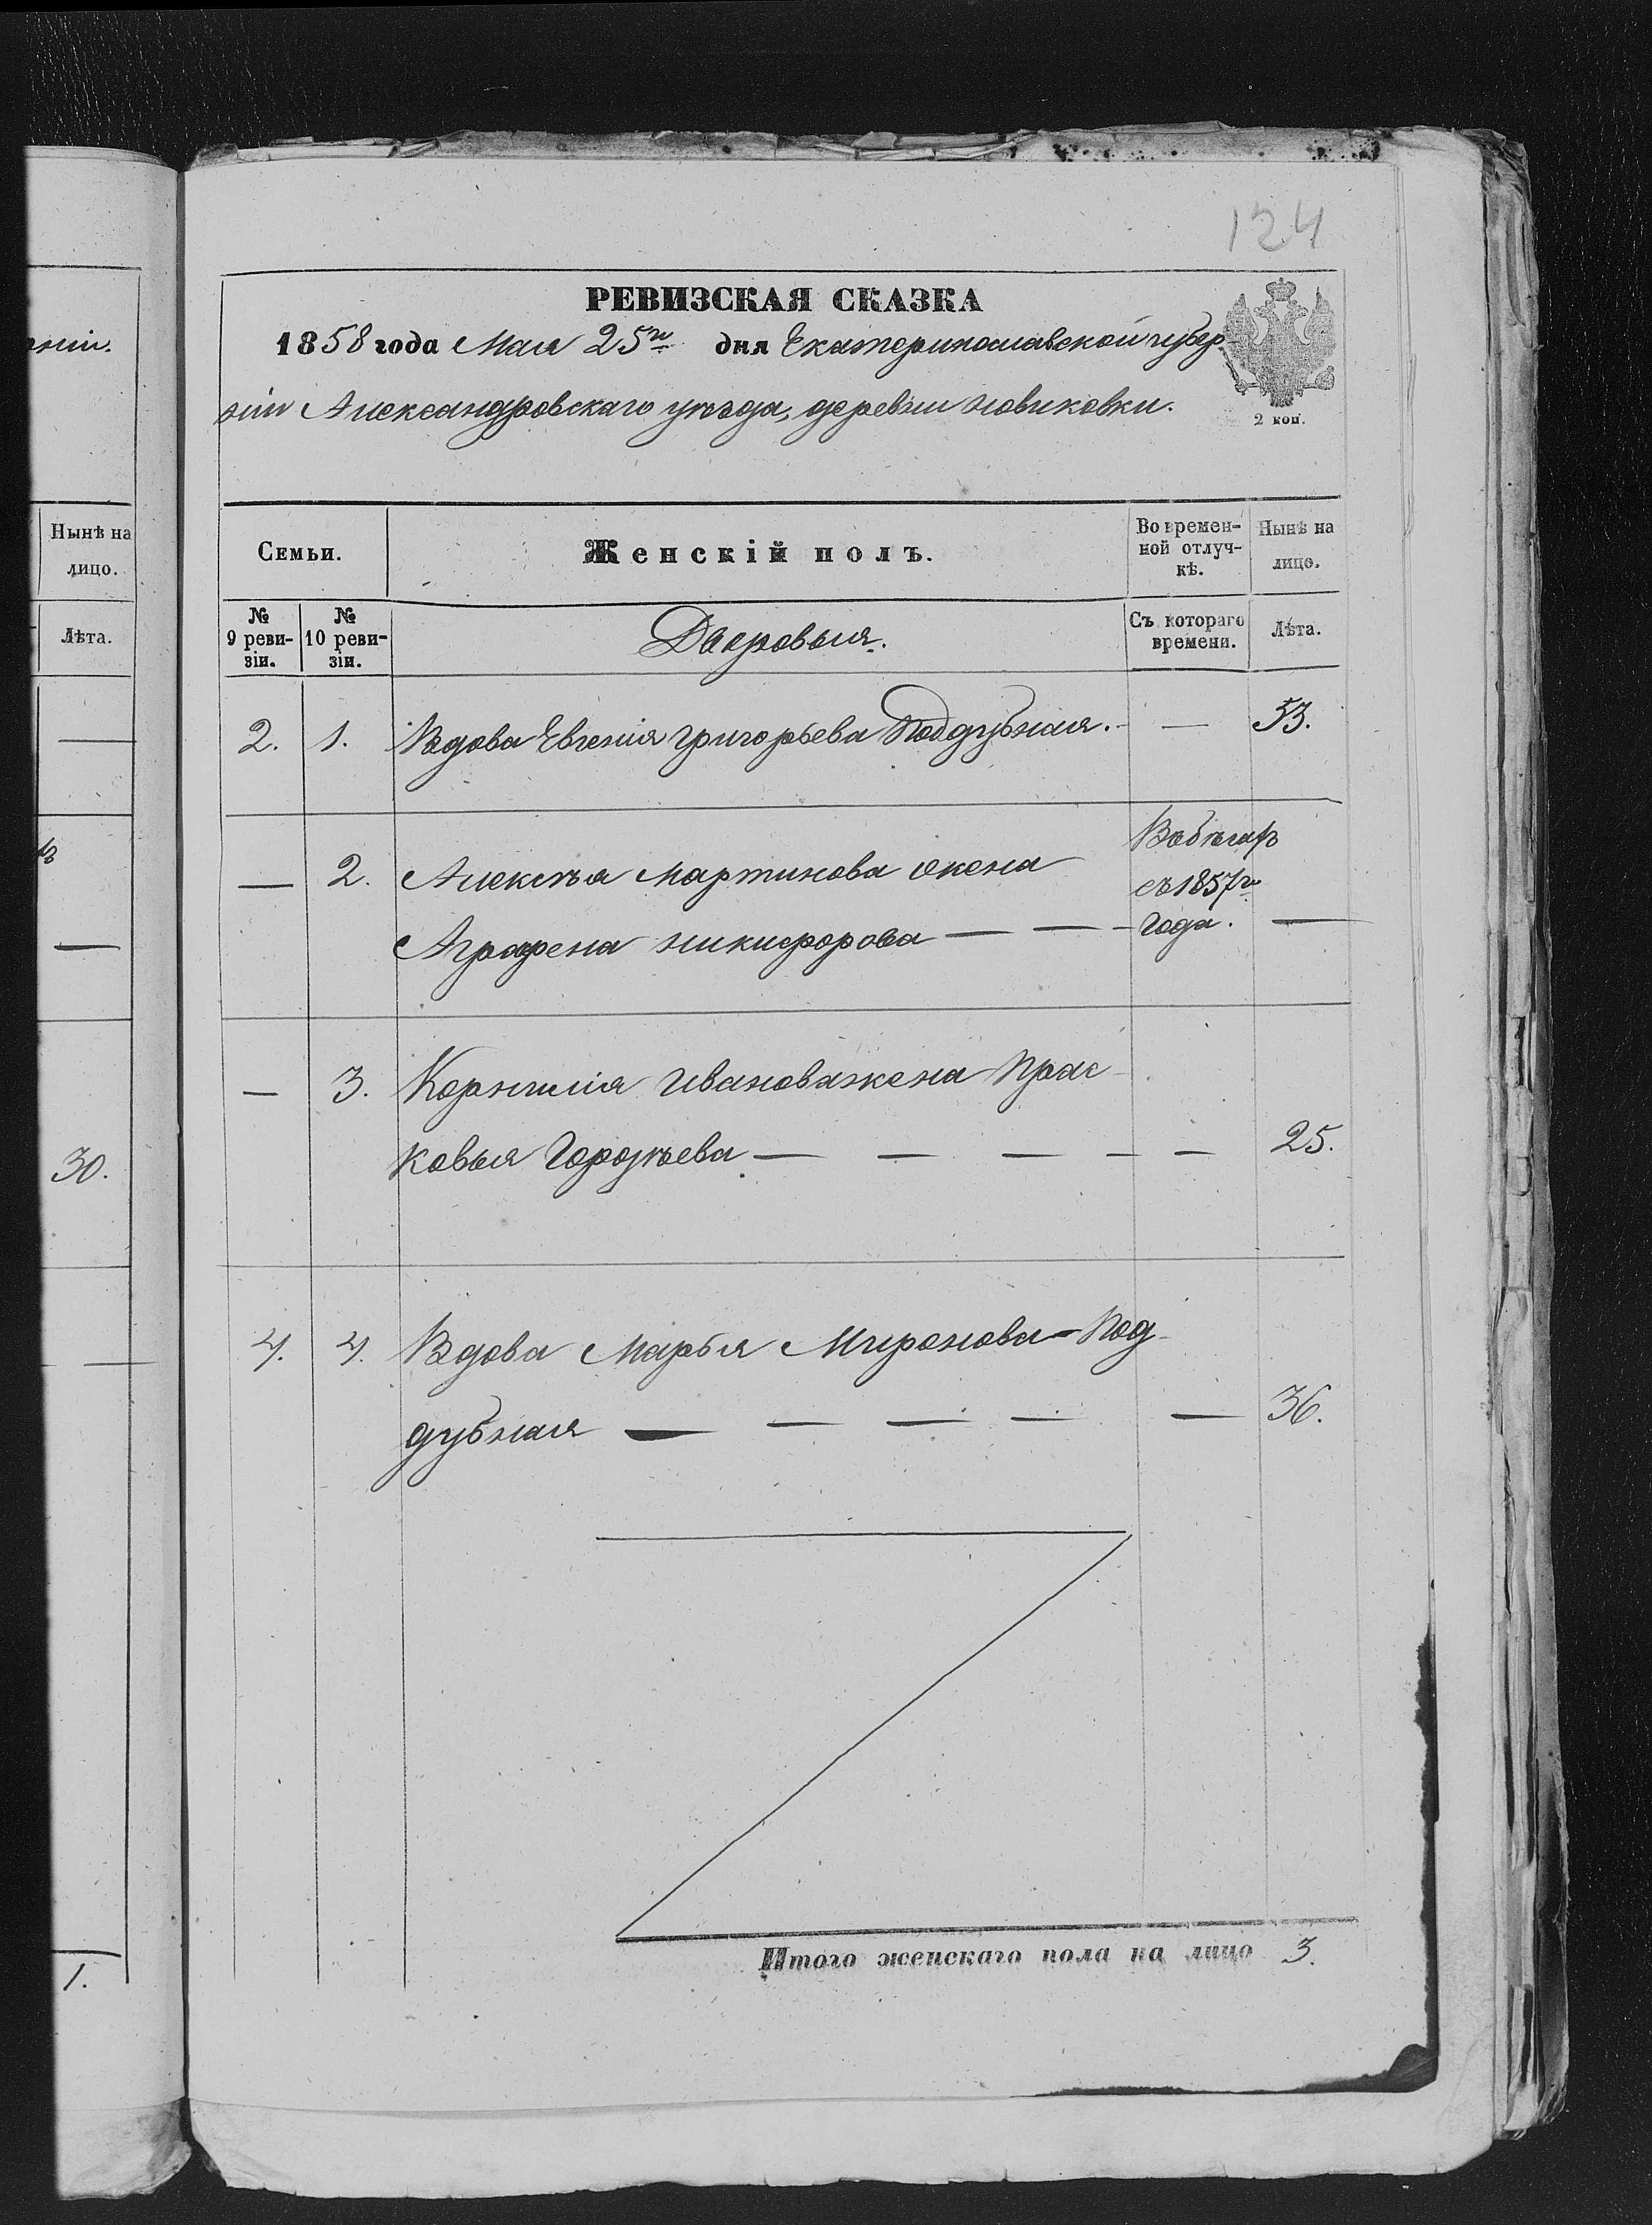 рніи.
Нынѣ на
лицо.
Лѣта.
30.
1.
124
РЕВИЗСКАЯ СКАЗКА
1858 года Мая 25го дня Екатеринославской губер
ніи Александровскаго уѣзда, деревни Новиковки.
2 коп.
Семьи.
Женскій полъ.
Во времен-
ной отлуч-
кѣ.
Нынѣ на
лицо.
№
9 реви-
зіи.
№
10 реви-
зіи.
Дворовыя.
Съ котораго
времени.
Лѣта.
2. 1. Вдова Евгенія Григорьева Поддубная. — 53.
Въ бѣгахъ
— 2. Алексѣя Мартинова жена
съ 1857го
Аграфена Никифорова — — — года. —
— 3. Корнилія Иванова жена Прас
ковья Гордѣева — — — — — 25.
4. 4. Вдова Марья Миронова Под-
дубная — — — — — 36.
Итого женскаго пола на лицо 3.